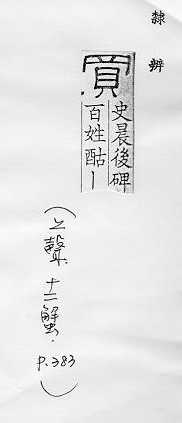 隸辨
買
史晨後碑
百姓酤｜
(上聲十二蟹. P.383)